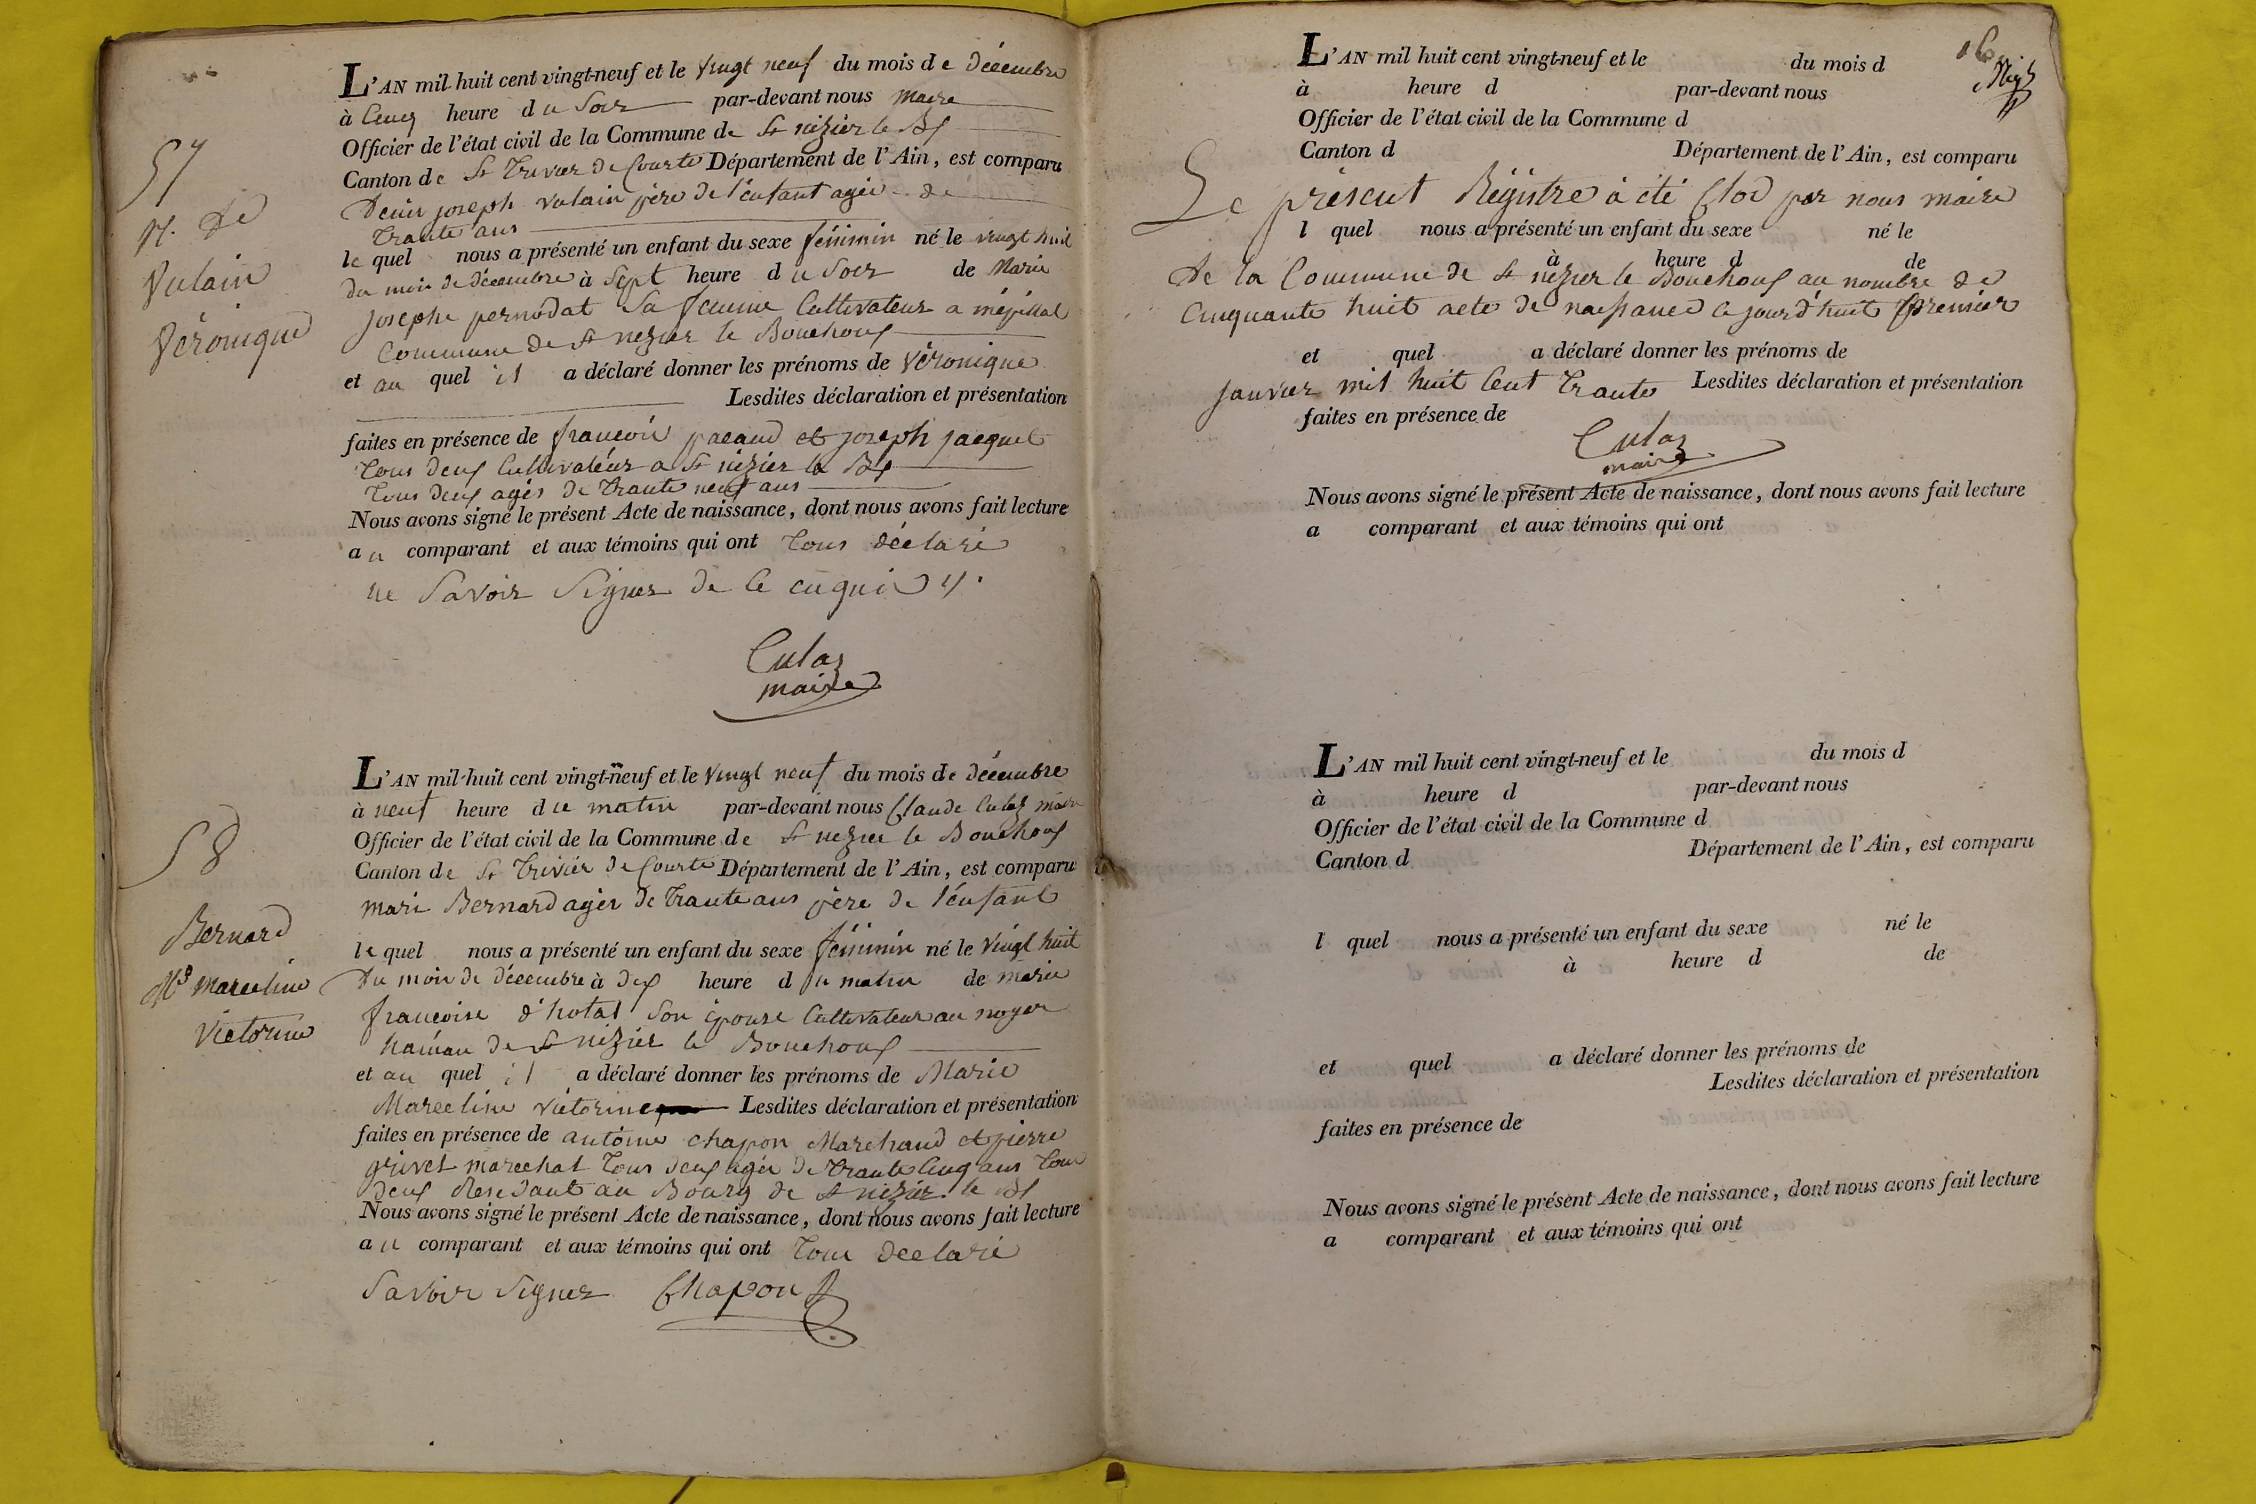 57
N. de
Vulain
Véronique
L'AN mil huit cent vingt-neuf et le vingt neuf du mois de décembre
à cinq heure du soir par-devant nous maire
Officier de l'état civil de la Commune de St nizier le Bx
Canton de St Trivier de Courte Département de l'Ain, est comparu
Denis joseph vulain père de l'enfant agée de
trante ans
le quel nous a présenté un enfant du sexe féminin né le vingt huit
du mois de décembre à sept heure du soir de Marie
josephe pernodat sa femme Cultivateur a
Commune de St nezier le Bouchoux
et au quel il a déclaré donner les prénoms de Véronique
Lesdites déclaration et présentation
faites en présence de francois pacaud et joseph jacquet
tous deux Cultivateur a St nizier le Bx
tous deux agés de trante neuf ans
Nous avons signé le présent Acte de naissance, dont nous avons fait lecture
au comparant et aux témoins qui ont tous déclaré
ne savoir signer de ce enquis
Culaz
maire
58
Bernard
Mie marceline
victorine
L'AN mil huit cent vingt-neuf et le vingt neuf du mois de décembre
à neuf heure du matin par-devant nous Claude Culaz maire
Officier de l'état civil de la Commune de St nezier le Bouchoux
Canton de St Trivier de Courte Département de l'Ain, est comparu
mari Bernard agés de trante ans père de l'enfant
le quel nous a présenté un enfant du sexe féminin né le vingt huit
du mois de décembre à dix heure du matin de marie
francoise d'hotal son épouse Cultivateur au noyer
hameau de St nizier le Bouchoux
et au quel il a déclaré donner les prénoms de Marie
Marceline victorine Lesdites déclaration et présentation
faites en présence de antoine chapon Marchand et pierre
grivet marechal tous deux agée de trante cinq ans tous
deux Residant au Bourg de St nizier le Bx
Nous avons signé le présent Acte de naissance, dont nous avons fait lecture
au comparant et aux témoins qui ont tous déclaré
savoir signer Chapon
16
L'AN mil huit cent vingt-neuf et le du mois d
à heure d par-devant nous
Officier de l'état civil de la Commune d
Canton d Département de l'Ain, est comparu
Le présent Régistre à été Clos par nous maire
l quel nous a présenté un enfant du sexe né le
à heure d de
de la Commune de St nezier le Bouchoux au nombre de
Cinquante huit acte de naissance ce jourd'huit premier
et quel a déclaré donner les prénoms de
janvier mil huit Cent trante Lesdites déclaration et présentation
faites en présence de
Culaz
maire
Nous avons signé le présent Acte de naissance, dont nous avons fait lecture
a comparant et aux témoins qui ont
L'AN mil huit cent vingt-neuf et le du mois d
à heure d par-devant nous
Officier de l'état civil de la Commune d
Canton d Département de l'Ain, est comparu
l quel nous a présenté un enfant du sexe né le
à heure d de
et quel a déclaré donner les prénoms de
Lesdites déclaration et présentation
faites en présence de
Nous avons signé le présent Acte de naissance, dont nous avons fait lecture
a comparant et aux témoins qui ont